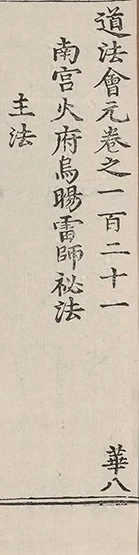 道法會元卷之一百二十一 華八
南宮火府烏暘雷師祕法
主法